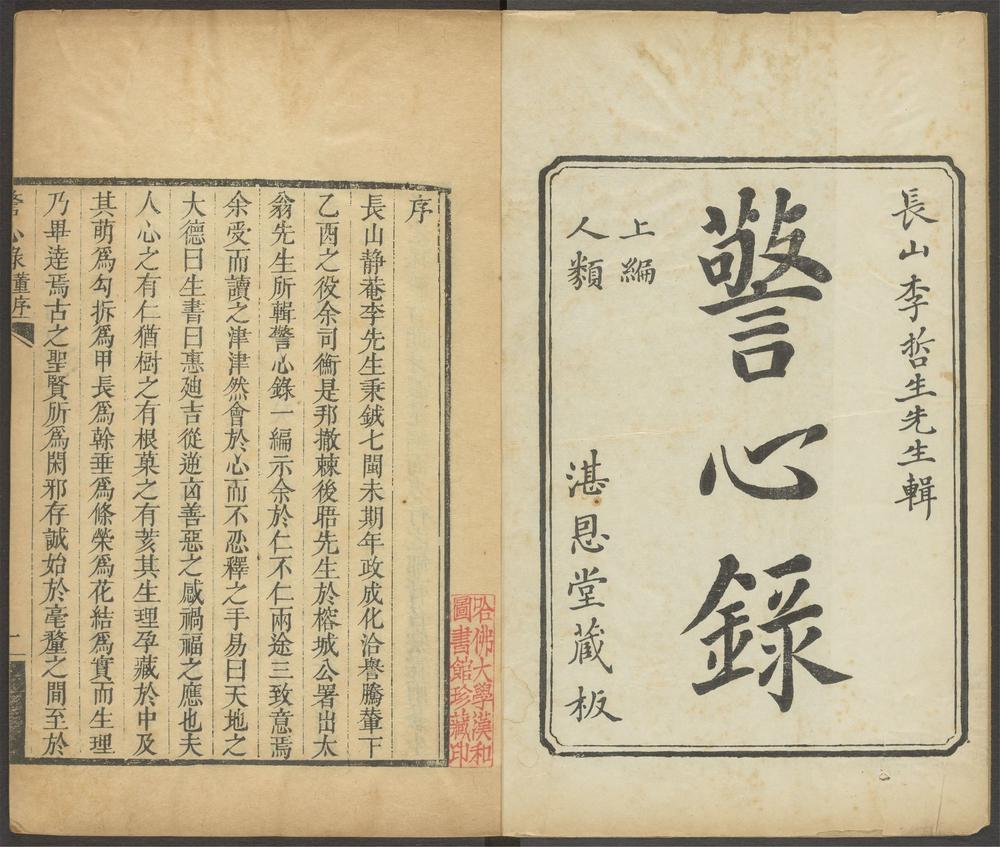 長山李哲生先生輯
警心錄
上編
人類
湛恩堂藏板
哈佛大學漢和
圖書館珍藏印
序
長山靜菴李先生秉鉞七閩未期年政成化洽譽騰輦下
乙酉之役余司衡是邦撤棘後晤先生於榕城公署出太
翁先生所輯警心錄一編示余於仁不仁兩途三致意焉
余受而讀之津津然會於心而不忍釋之手易曰天地之
大德曰生書曰惠廸吉從逆凶善惡之感禍福之應也夫
人心之有仁猶樹之有根菓之有荄其生理孕藏於中及
其萌爲勾拆爲甲長爲榦垂爲條榮爲花結爲實而生理
乃畢達焉古之聖賢所爲閑邪存誠始於毫釐之間至於
警心錄董序
一